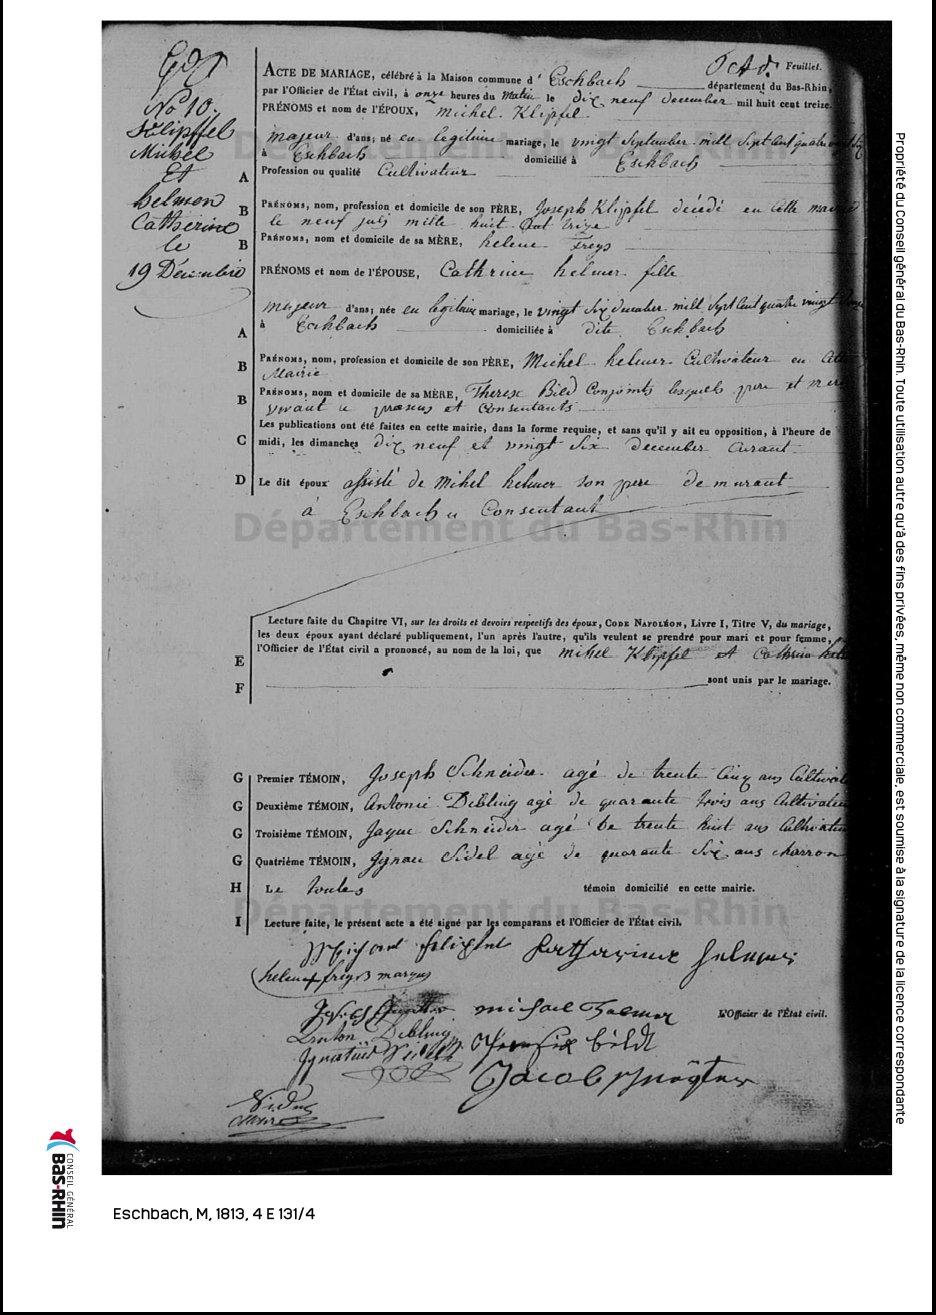 Octd. Feuillet.
No 10.
Klipffel
Michel
Et
helmer
Catherine
le
19 Décembre
ACTE DE MARIAGE, célébré à la Maison commune d' Eschbach
département du Bas-Rhin,
par l'Officier de l'État civil, à onze heures du matin le dix neuf december mil huit cent treize.
PRÉNOMS et nom de l'ÉPOUX, michel Klipfel
majeur d'ans; né en legitime mariage, le vingt September mill Sept Cent quatre
à Eschbach domicilié à Eschbach
A Profession ou qualité Cultivateur
B PRÉNOMS, nom, profession et domicile de son PÈRE, Joseph Klipfel décédé en cette
le neuf mille huit Cent
B PRÉNOMS, nom et domicile de sa MÈRE, helene Freys
PRÉNOMS et nom de l'ÉPOUSE, Cathrine helmer fille
majeur d'ans; née en legitime mariage, le vingt Six december mill Sept Cent quatre vingt
A à Eschbach domiciliée à dite Eschbach
B PRÉNOMS, nom, profession et domicile de son PÈRE, Michel helmer Cultivateur en
Mairie
B PRÉNOMS, nom et domicile de sa MÈRE, Therese Bild Conjoints lesquels pere et mere
vivant et et Consentants
Les publications ont été faites en cette mairie, dans la forme requise, et sans qu'il y ait eu opposition, à l'heure de
C midi, les dimanches dix neuf et vingt Six december Curant
D Le dit époux assisté de Mihel helmer Son pere demurant
à Eschbach Consentant
Lecture faite du Chapitre VI, sur les droits et devoirs respectifs des époux, CODE NAPOLÉON, Livre I, Titre V, du mariage,
les deux époux ayant déclaré publiquement, l'un après l'autre, qu'ils veulent se prendre pour mari et pour femme,
E l'Officier de l'État civil a prononcé, au nom de la loi, que mihel Klipfel et Cathrin
F sont unis par le mariage.
G Premier TÉMOIN, Joseph Schneider agé de trente Cinq ans
G Deuxième TÉMOIN, Antonie Dibling agé de quarante trois ans Cultivateur
G Troisième TÉMOIN, Jaque Schneider agé de trente huit ans Cultivateur
G Quatrième TÉMOIN, Ignace Sidel agé de quarante Six ans charron
H Le toutes témoin domicilié en cette mairie.
I Lecture faite, le présent acte a été signé par les comparans et l'Officier de l'État civil.
helena freys
michael
L'Officier de l'État civil.
Anton Dibling
Ignatius
Jacob
Département du Bas-Rhin
Département du Bas-Rhin
Département du Bas-Rhin
Propriété du Conseil général du Bas-Rhin. Toute utilisation autre qu'à des fins privées, même non commerciale, est soumise à la signature de la licence correspondante
CONSEIL GÉNÉRAL
Bas-RHIN
Eschbach, M, 1813, 4 E 131/4